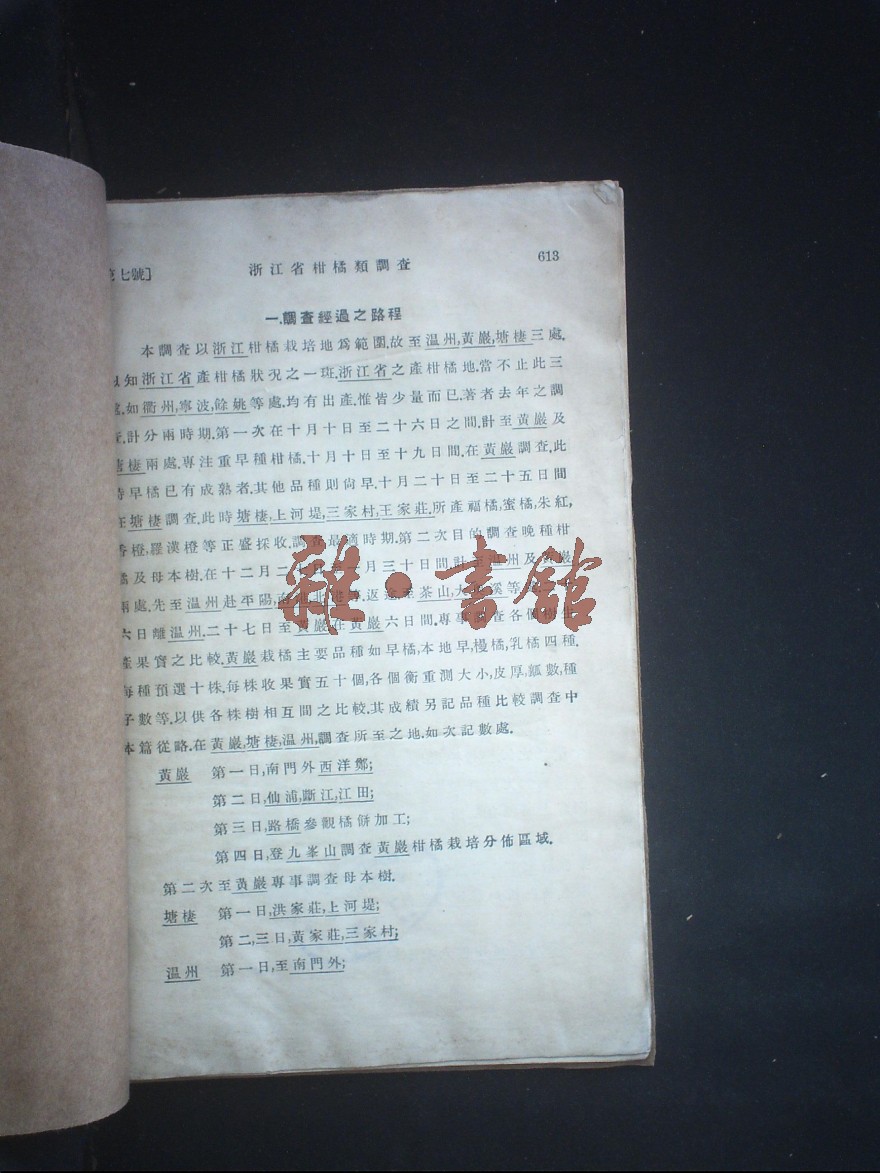 七號]
浙江省柑橘類調查
613
一.調查經過之路程
本調查以浙江柑橘栽培地爲範圍,故至温州,黃巖,塘棲三處.
以知浙江省產柑橘狀況之一斑.浙江省之產柑橘地,當不止此三
處.如衢州,寧波,餘姚等處.均有出產.惟皆少量而已.著者去年之調
計分兩時期.第一次在十月十日至二十六日之間.計至黃巖及
塘棲兩處.專注重早種柑橘.十月十日至十九日間.在黃巖調查.此
時早橘已有成熟者.其他品種則尙早.十月二十日至二十五日間
在塘棲調查.此時塘棲,上河堤,三家村,王家莊.所產福橘,蜜橘,朱紅,
香橙,羅漢橙等正盛採收.調查最適時期.第二次目的調查晚種柑
橘及母本樹.在十二月二 月三十日間.計至温州及黃巖
兩處.先至温州赴平陽, 返 至茶山,大 溪等
六日離温州.二十七日至黃巖.在黃巖六日間.專事調查各個樹生
產果實之比較.黃巖栽橘主要品種如早橘,本地早,槾橘,乳橘四種.
每種預選十株.每株收果實五十個,各個衡重測大小,皮厚,瓤數,種
子數等.以供各株樹相互間之比較.其成績另記品種比較調查中
本篇從略.在黃巖,塘棲,温州,調查所至之地.如次記數處.
黃巖 第一日,南門外西洋鄭;
第二日,仙浦,斷江,江田;
第三日,路橋參觀橘餅加工;
第四日,登九峯山調查黃巖柑橘栽培分佈區域.
第二次至黃巖專事調查母本樹.
塘棲 第一日,洪家莊,上河堤;
第二,三日,黃家莊,三家村;
温州 第一日,至南門外;
雜·書館